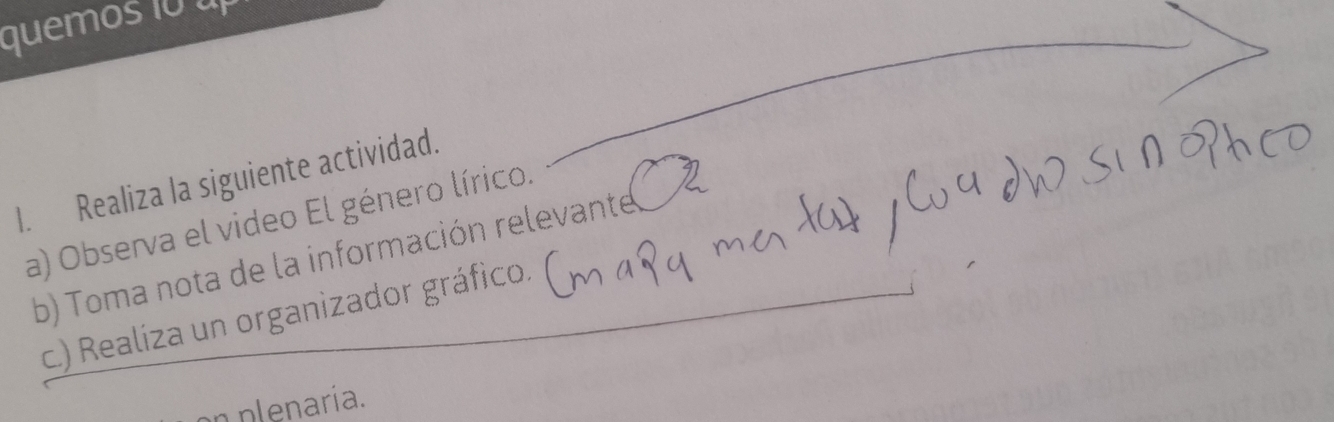 quemos lo ap
I. Realiza la siguiente actividad.
a) Observa el video El género lírico.
b) Toma nota de la información relevante.
c) Realiza un organizador gráfico. (mapa mental, cuadro sinoptico
en plenaria.